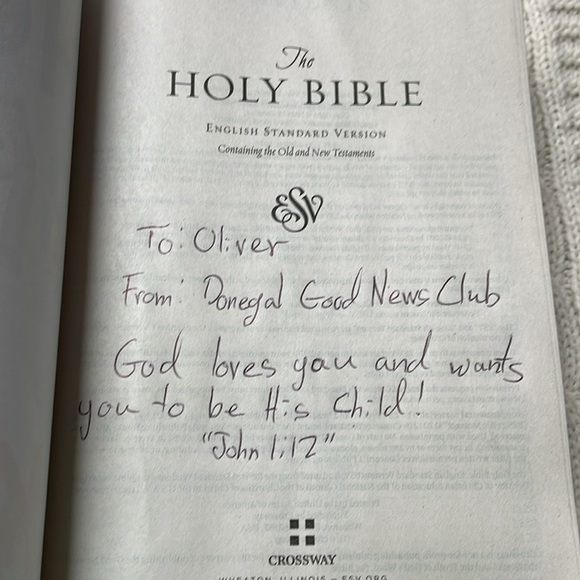 The
HOLY BIBLE
ENGLISH STANDARD VERSION
Containing the Old and New Testaments
ESV
To: Oliver
From: Donegal Good News Club
God loves you and wants
you to be His Child!
"John 1:12"
CROSSWAY
WHEATON, ILLINOIS – ESV.ORG